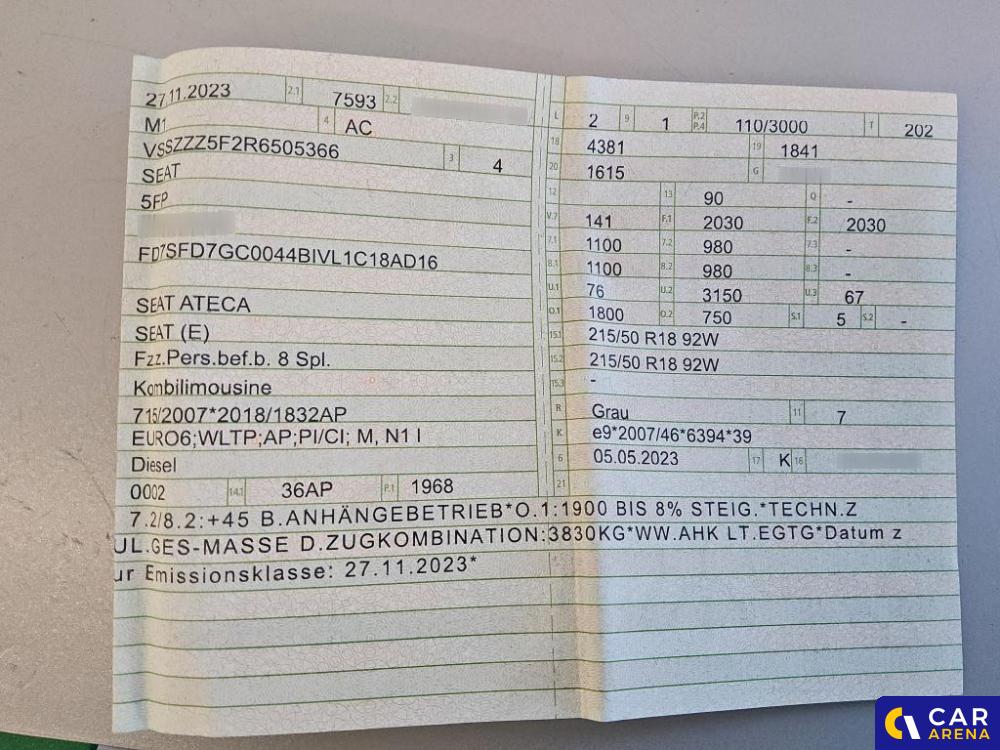 27.11.2023 2.1 7593 2.2
M1 4 AC
VSSZZZ5F2R6505366 3 4
SEAT
5FP
FD7SFD7GC0044BIVL1C18AD16
SEAT ATECA
SEAT (E)
Fzz.Pers.bef.b. 8 Spl.
Kombilimousine
715/2007*2018/1832AP
EURO6;WLTP;AP;PI/CI; M, N1 I
Diesel
0002 14.1 36AP P.1 1968
L 2 9 1 P.2 P.4 110/3000 T 202
18 4381 19 1841
20 1615 G
12 13 90 Q -
V.7 141 F.1 2030 F.2 2030
7.1 1100 7.2 980 7.3 -
8.1 1100 8.2 980 8.3 -
U.1 76 U.2 3150 U.3 67
O.1 1800 O.2 750 S.1 5 S.2 -
15.1 215/50 R18 92W
15.2 215/50 R18 92W
15.3 -
R Grau 11 7
K e9*2007/46*6394*39
6 05.05.2023 17 K 16
21
7.2/8.2:+45 B.ANHÄNGEBETRIEB*O.1:1900 BIS 8% STEIG.*TECHN.Z
UL.GES-MASSE D.ZUGKOMBINATION:3830KG*WW.AHK LT.EGTG*Datum z
ur Emissionsklasse: 27.11.2023*
CAR
ARENA